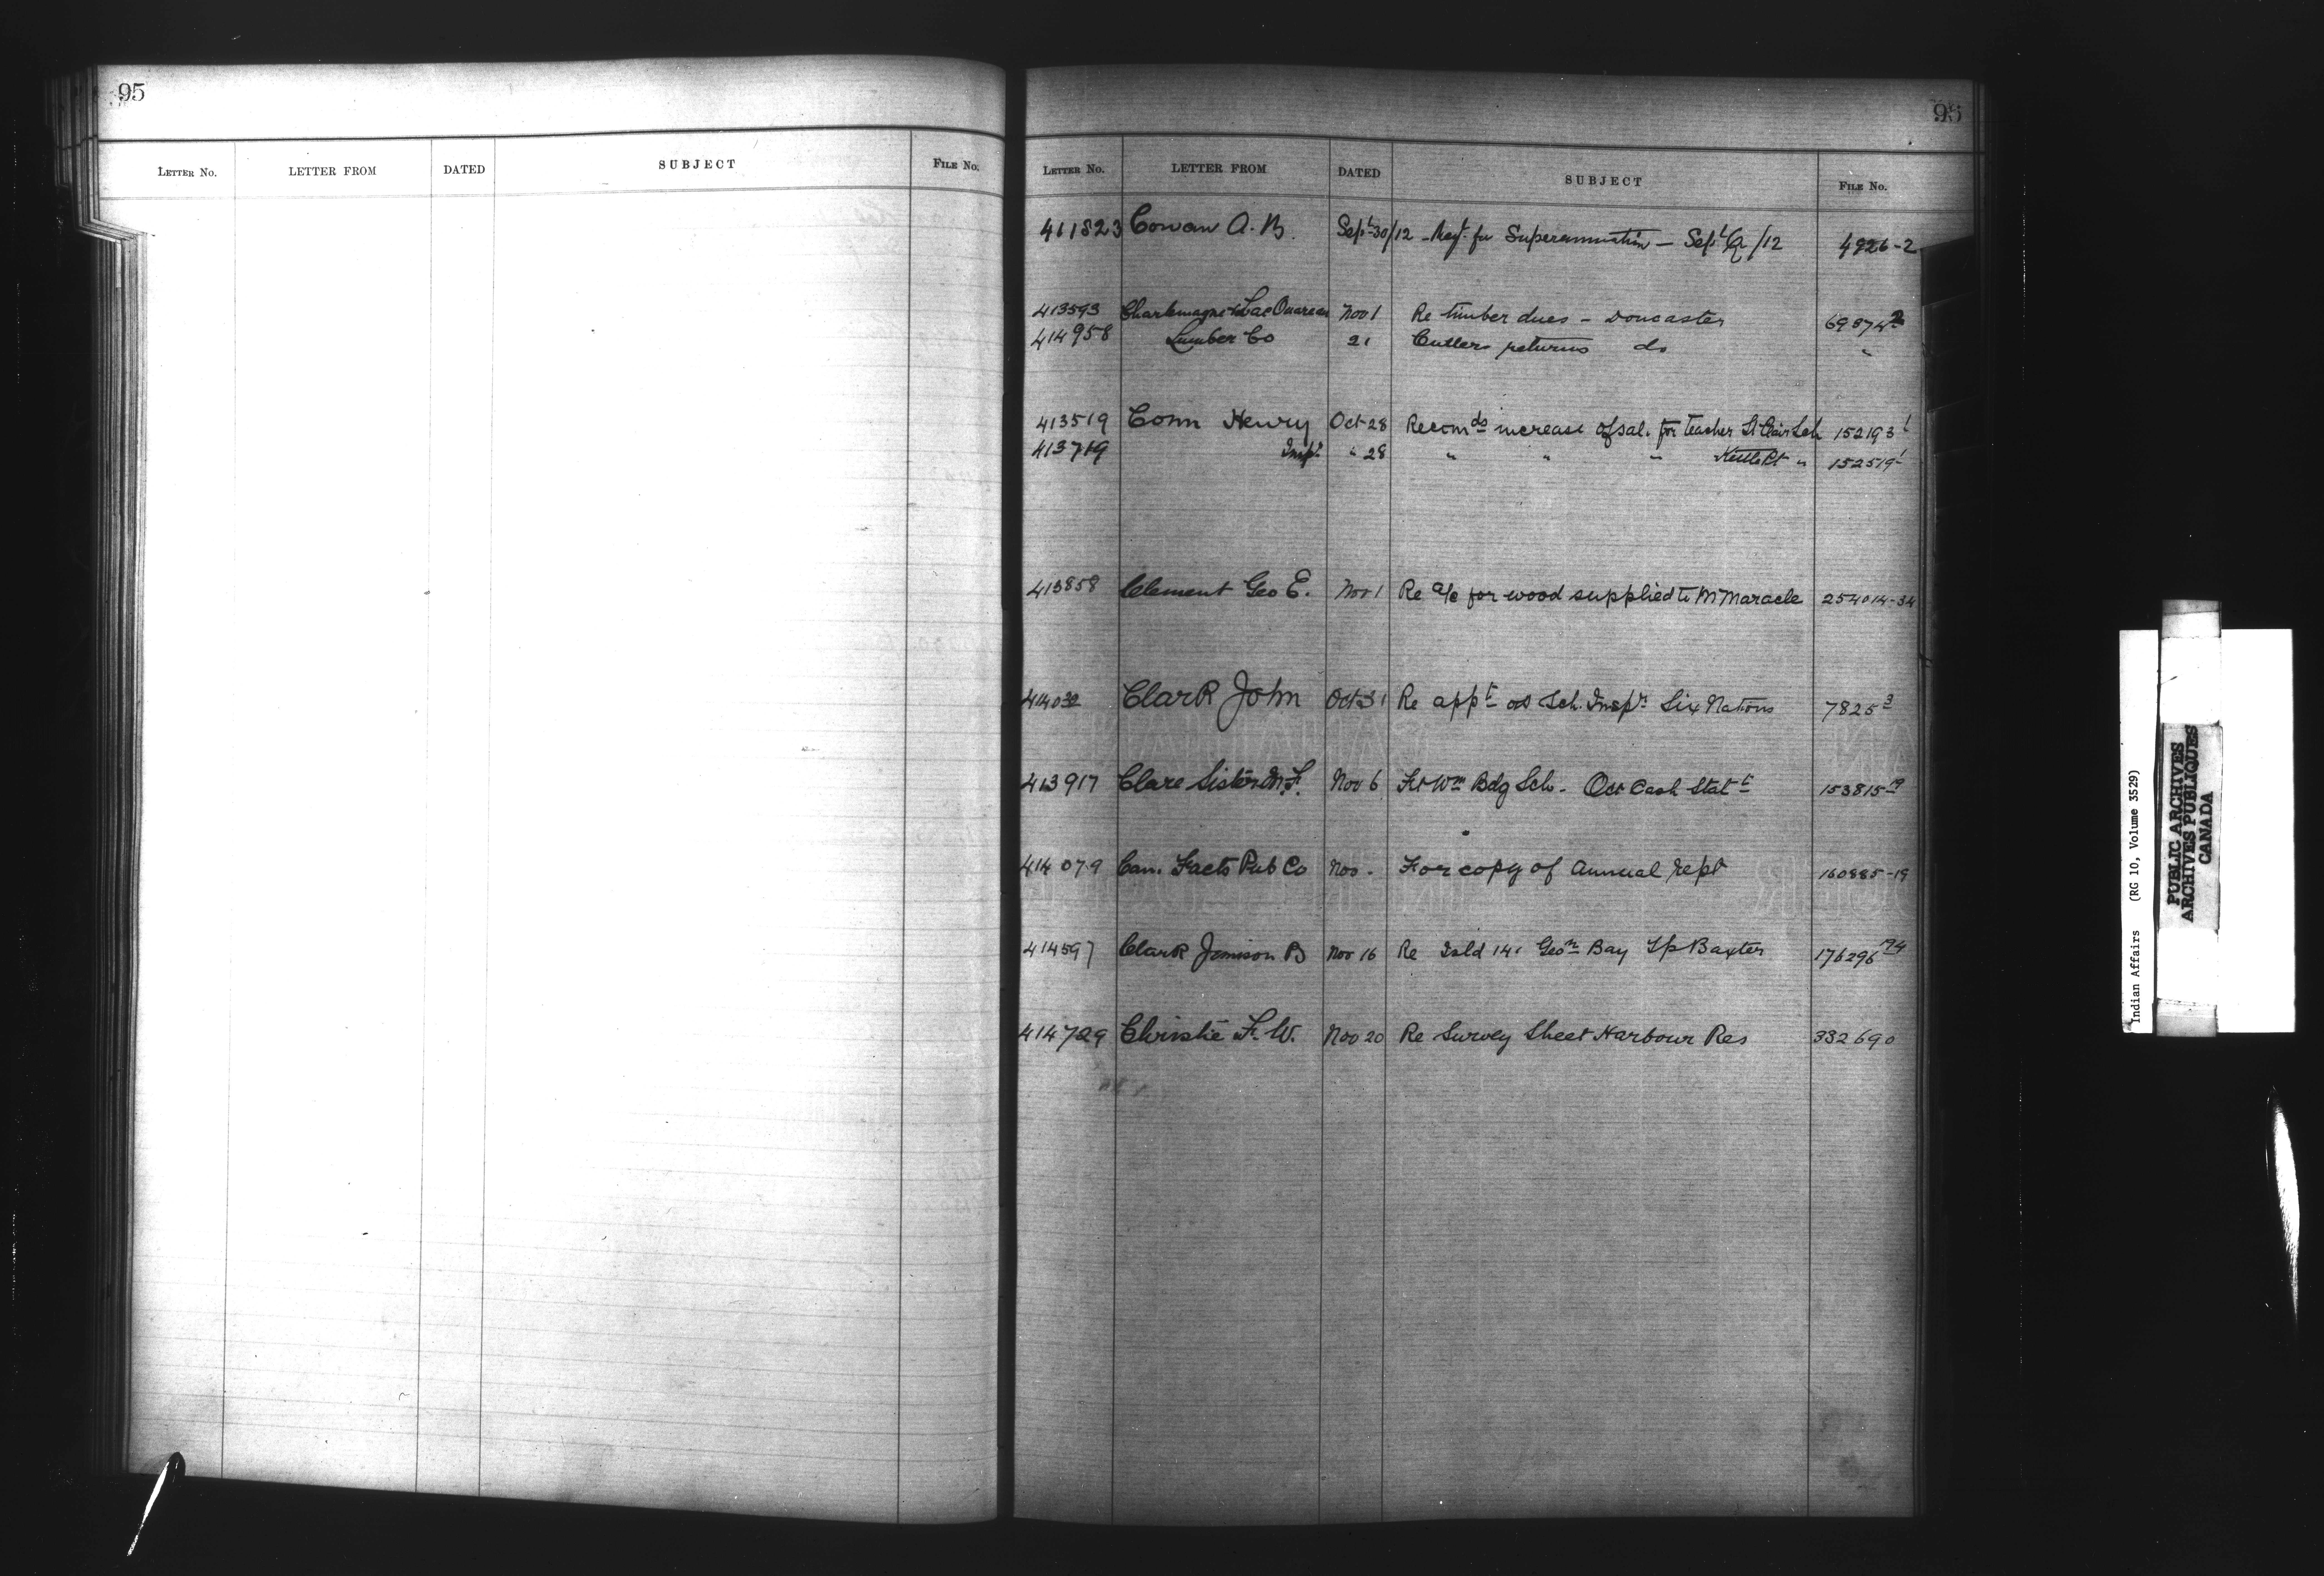 95
LETTER NO. LETTER FROM DATED SUBJECT FILE NO.
95
LETTER NO. LETTER FROM DATED SUBJECT FILE NO.
411823 Cowan A. B. Sept 30/12 - Reqt. for Superannuation - Sept Qr /12 4926-2
413593 Charlemagne & Lac Ouareau Nov 1 Re timber dues - Doncaster 69874-2
414958 Lumber Co 21 Cullers returns do "
413519 Conn Henry Oct 28 Recomds increase of sal. for teacher St Clair Sch 152193-1
413719 Inspr " 28 " " " Kettle Pt " 152519-1
413858 Clement Geo E. Nov 1 Re a/c for wood supplied to M Maracle 254014-34
414032 Clark John Oct 31 Re appt as Sch. Inspr Six Nations 7825-3
413917 Clare Sister M. F. Nov 6 Ft Wm Bdg Sch. Oct Cash Statt 153815-19
414079 Can. Facts Pub Co Nov. For copy of Annual rept 160885-19
414597 Clark Jemison B Nov 16 Re Isld 141 Geon Bay Tp Baxter 176296-174
414729 Christie F. W. Nov 20 Re Survey Sheet Harbour Res 332690
Indian Affairs (RG 10, Volume 3529)
PUBLIC ARCHIVES
ARCHIVES PUBLIQUES
CANADA